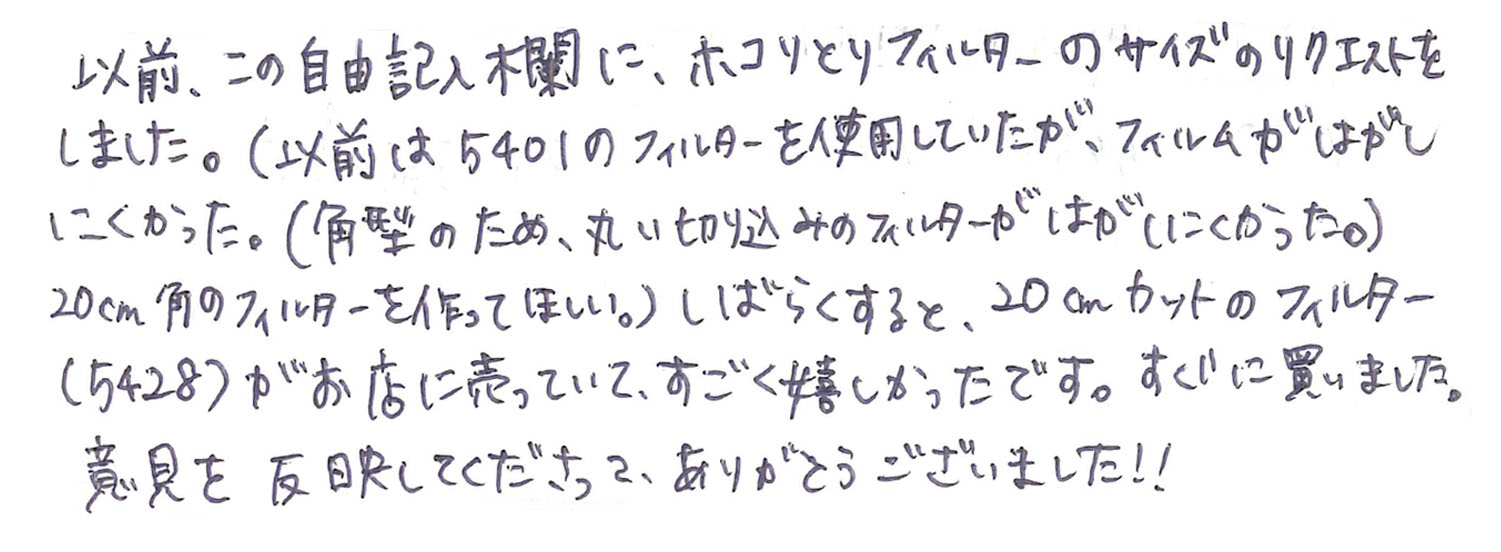 以前、この自由記入欄に、ホコリとりフィルターのサイズのリクエストを
しました。(以前は5401のフィルターを使用していたが、フィルムがはがし
にくかった。(角型のため、丸い切り込みのフィルターがはがしにくかった。)
20cm角のフィルターを作ってほしい。)しばらくすると、20cmカットのフィルター
(5428)がお店に売っていて、すごく嬉しかったです。すぐに買いました。
意見を反映してくださって、ありがとうございました!!